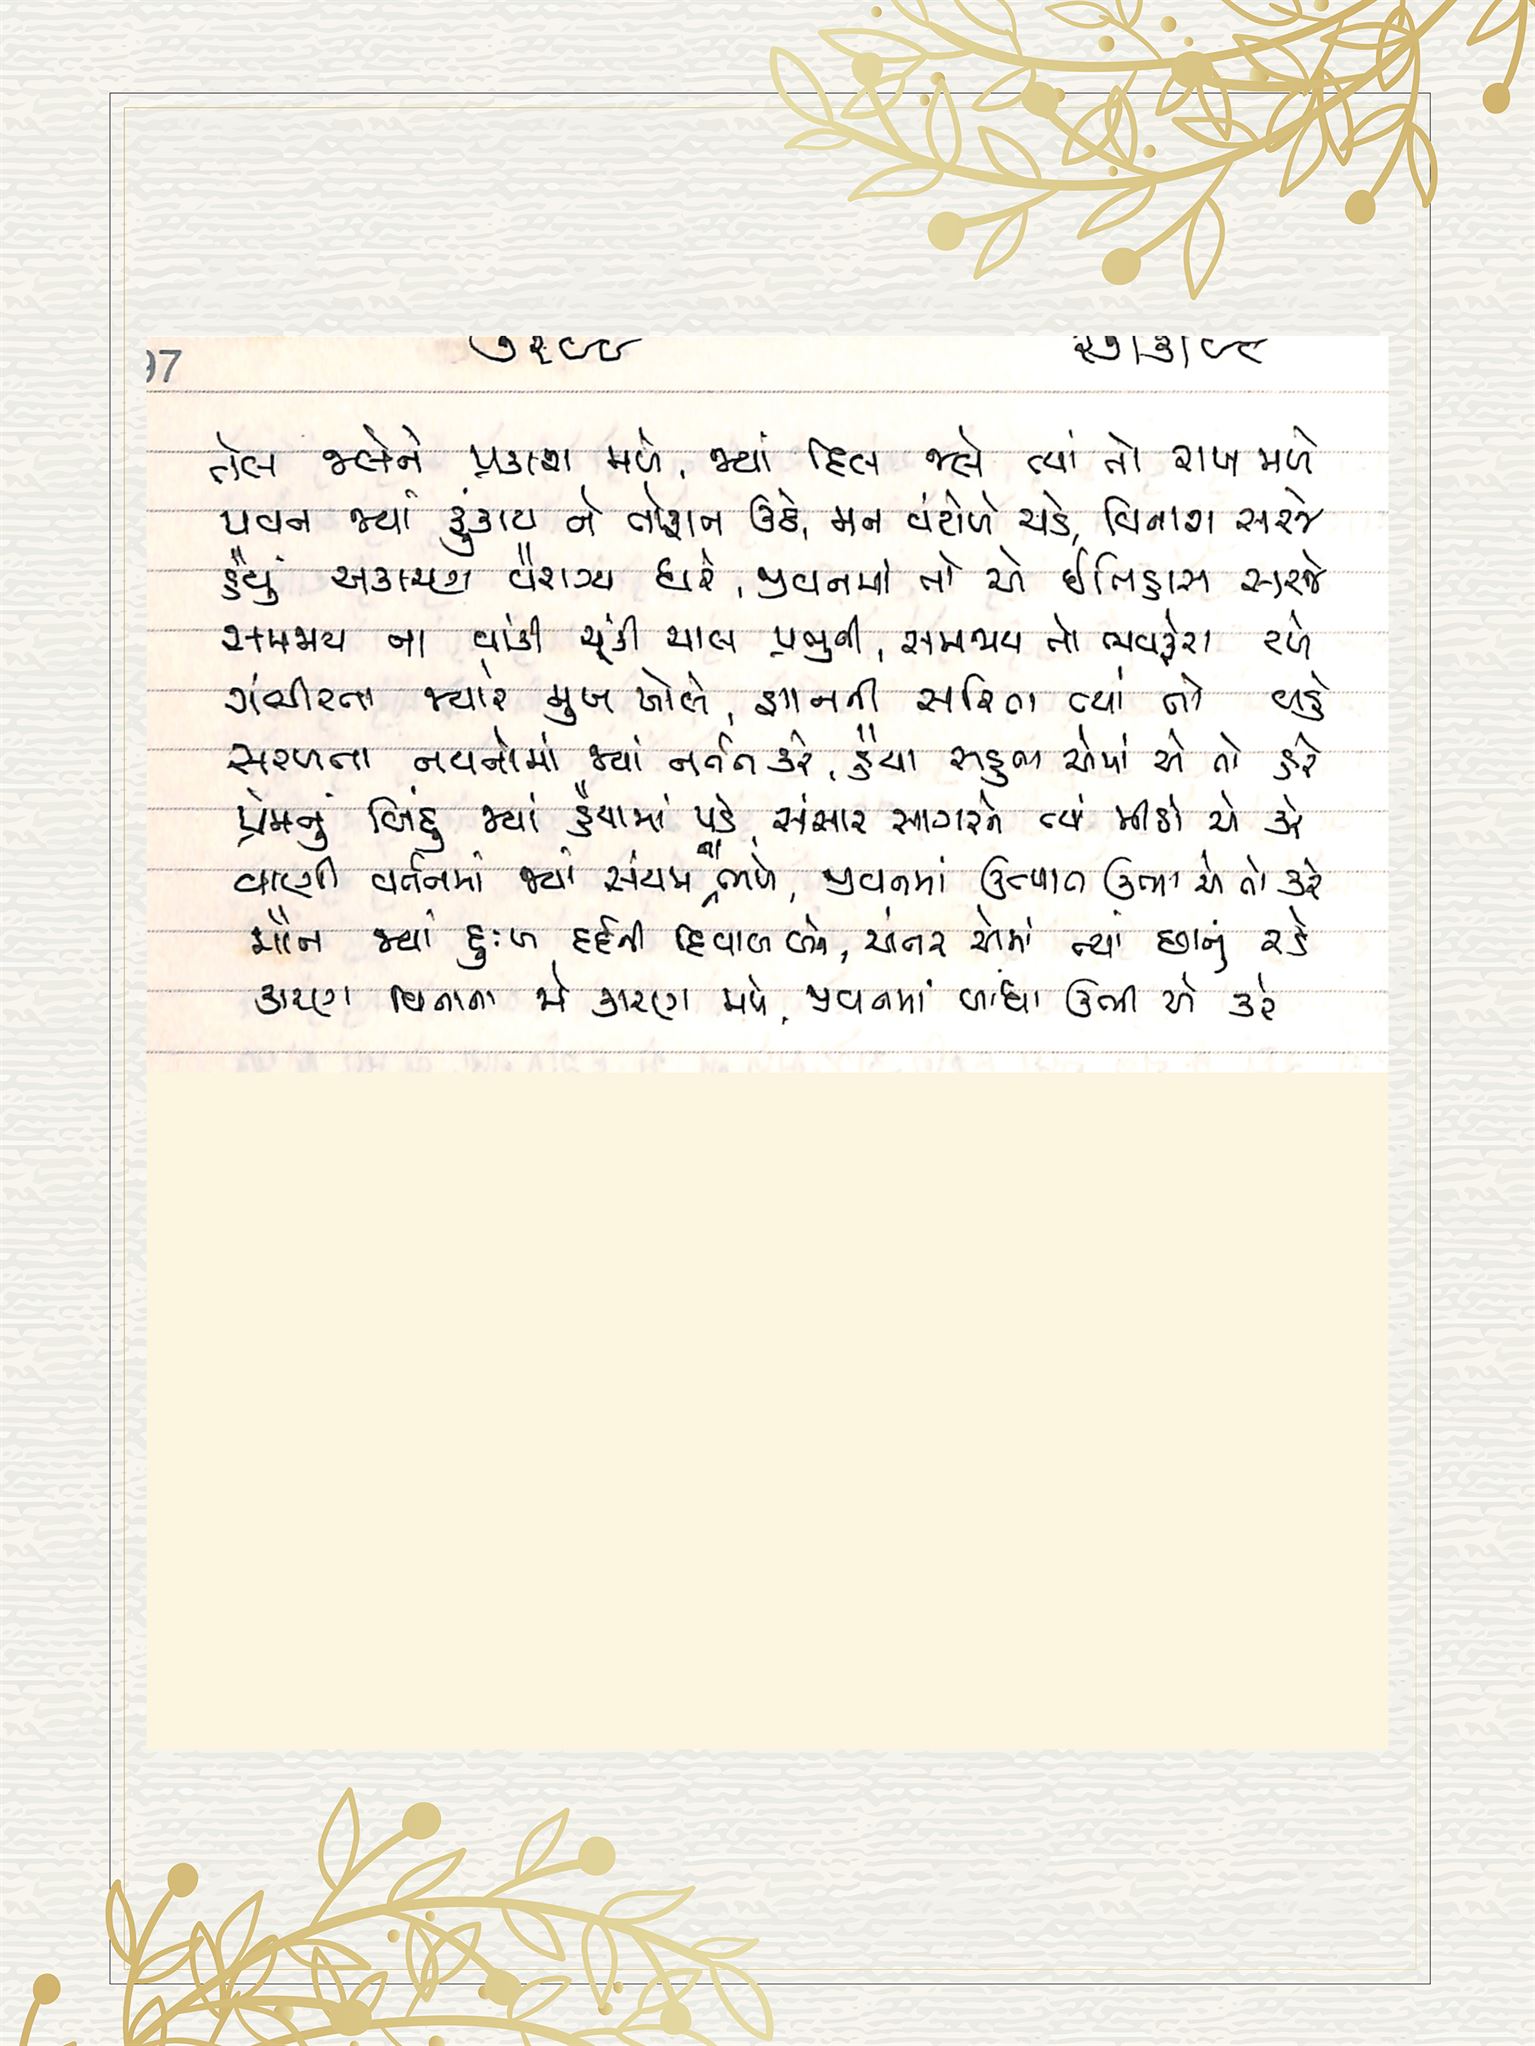 97
૭૨૯૯ ૨૭/૩/૯૮
તેલ જલેને પ્રકાશ મળે, જ્યાં દિલ જલે ત્યાં તો રાખ મળે
પવન જ્યાં ફુંકાય ને તોફાન ઉઠે, મન વંટોળે ચડે, વિનાશ સરજે
હૈયું અકારણ વૈરાગ્ય ધરે, જીવનમાં તો એ ઈતિહાસ સરજે
સમજાય ના વાંકી ચૂંકી ચાલ પ્રભુની, સમજાય તો ભવફેરા ટળે
ગંભીરતા જ્યારે મુખ ખોલે, જ્ઞાનની સરિતા ત્યાં તો વહે
સરળતા નયનોમાં જ્યાં નર્તન કરે, હૈયા સહુના એમાં એ તો હરે
પ્રેમનું બિંદુ જ્યાં હૈયામાં પડે, સંસાર સાગરને ત્યાં મીઠો એ કરે
વાણી વર્તનમાં જ્યાં સંયમ ના ભળે, જીવનમાં ઉત્પાત ઉભા એ તો કરે
મૌન જ્યાં દુઃખ દર્દની દિવાલ બને, અંતર એમાં ત્યાં છાનું રડે
કારણ વિનાના એ કારણ મળે, જીવનમાં બાંધા ઉભી એ કરે